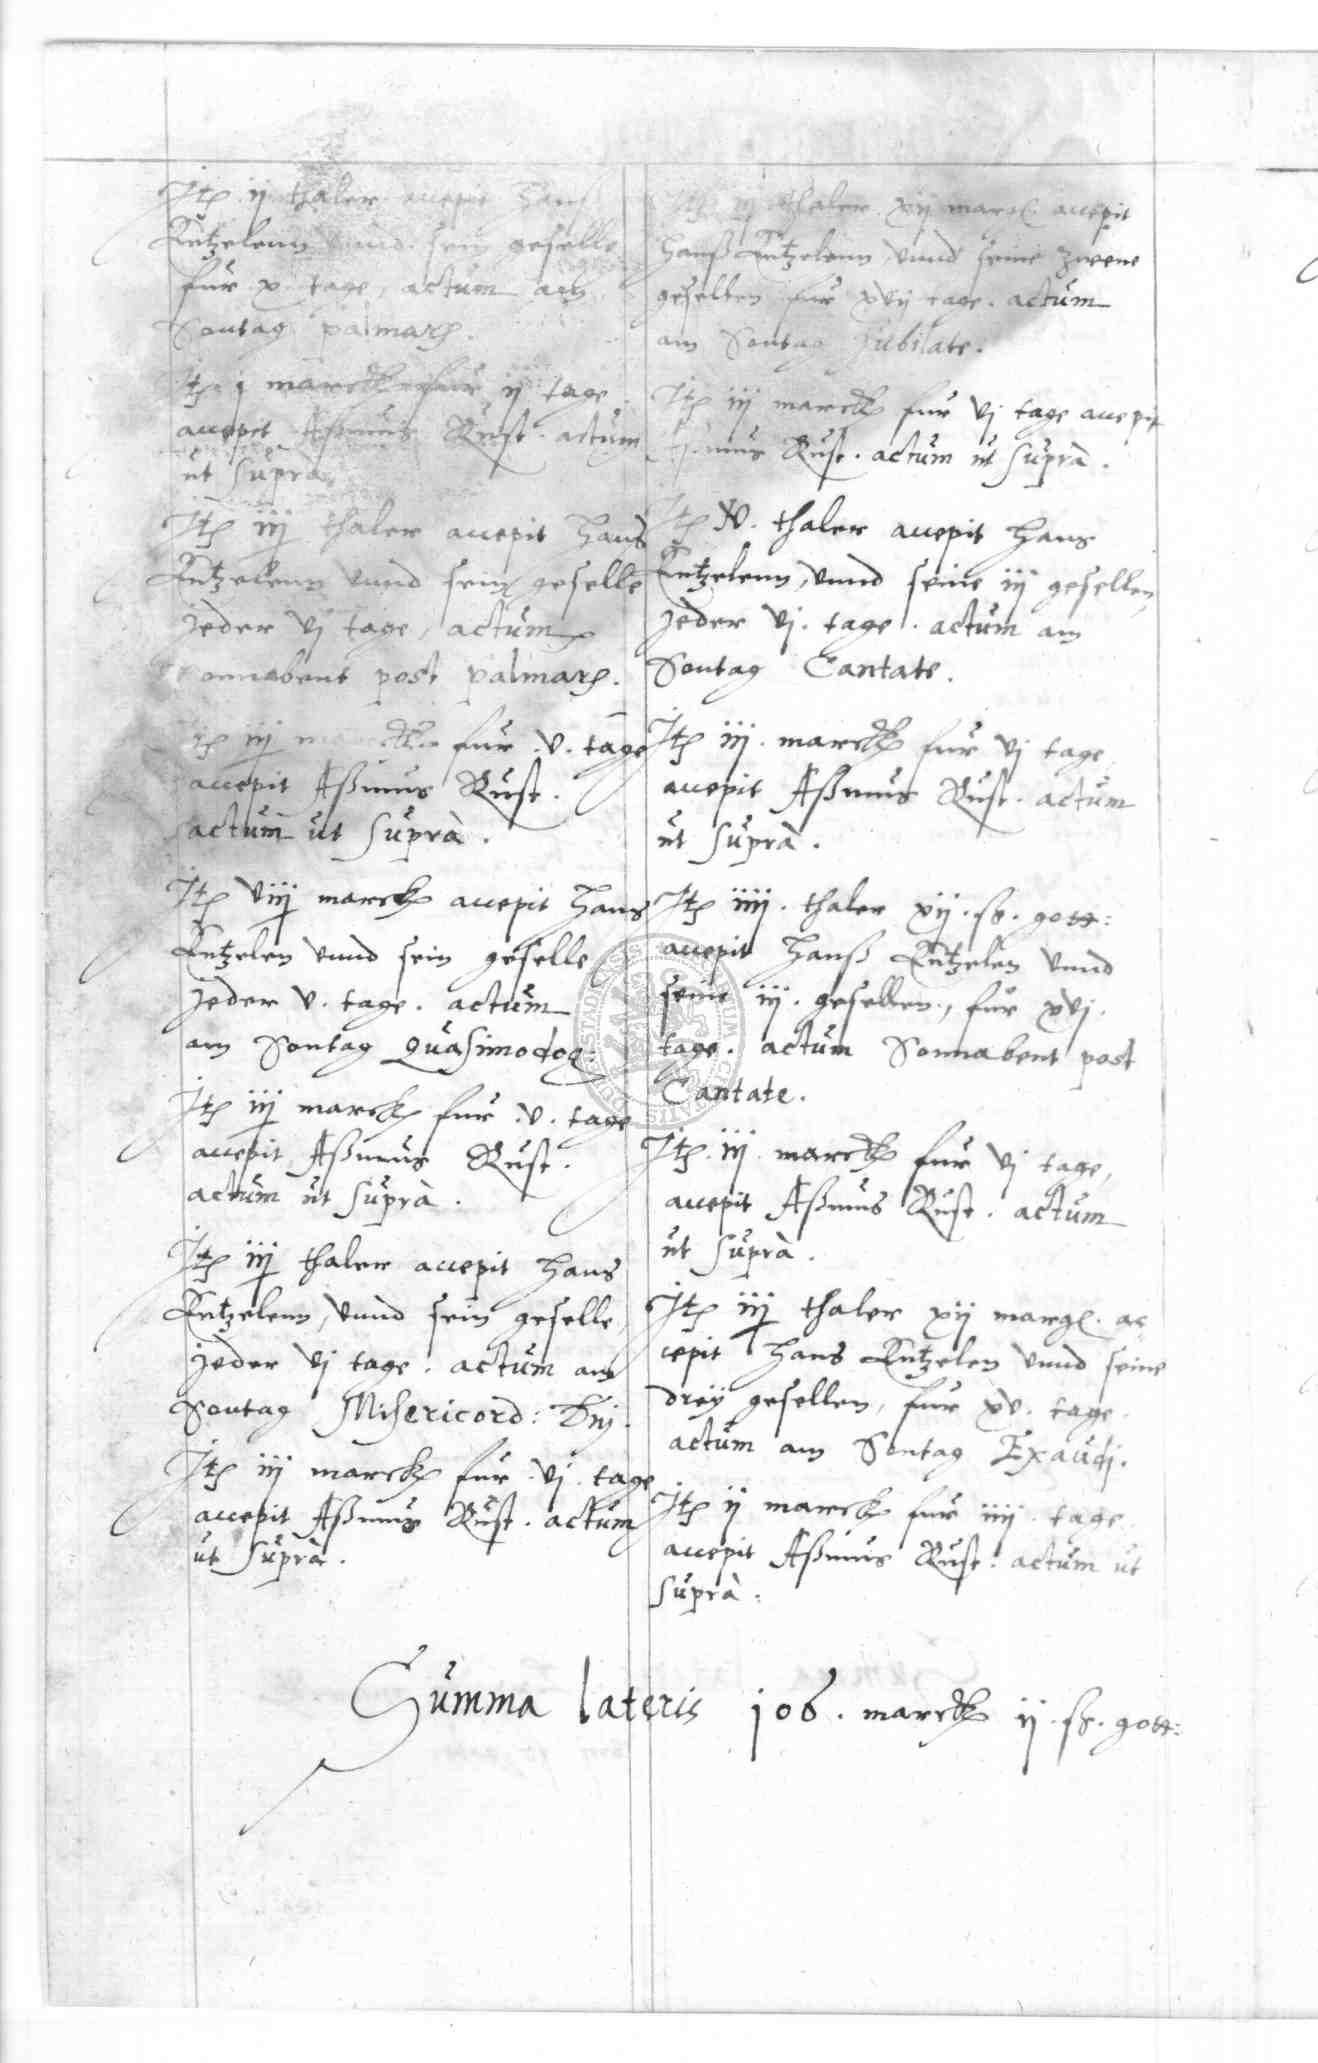 Itẽ ij thaler accepit Hans
Entzelenn vnnd sein geselle
fur x tage, actum am
Sontag palmarũ.
Itẽ j marck fur ij tage
accepit Aßmus Rust. actum
ut suprà.
Itẽ iij thaler accepit Hans
Entzelenn vnnd sein geselle
jeder vj tage, actum
Sonnabent post palmarũ.
Itẽ iij marck fur .v. tage
accepit Aßmus Rust.
actum ut suprà.
Itẽ viij marck accepit Hans
Entzelen vnnd sein geselle
jeder v. tage. actum
am Sontag Quasimodog:
Itẽ iij marck fur .v. tage
accepit Aßmus Rust.
actum ut suprà.
Itẽ iij thaler accepit Hans
Entzelenn, vnnd sein geselle,
jeder vj tage. actum am
Sontag Misericord: Dnj.
Itẽ iij marck fur .vj. tage
accepit Aßmus Rust. actum
ut suprà.
Itẽ iij thaler xij marg. accepit
Hanß Entzelenn, vnnd seine zwene
gesellen fur xvij tage. actum
am Sontag Jubilate.
Itẽ iij marck fur vj tage accepit
Aßmus Rust. actum ut suprà.
Itẽ N. thaler accepit Hans
Entzelenn, vnnd seine iij gesellen,
jeder vj. tage. actum am
Sontag Cantate.
Itẽ iij. marck fur vj tage,
accepit Aßmus Rust. actum
ut suprà.
Itẽ iiij. thaler xij. sß. gott:
accepit Hanß Entzelen vnnd
seine iij. gesellen, fur xvj.
tage. actum Sonnabent post
Cantate.
Itẽ. iij. marck fur vj tage,
accepit Aßmus Rust. actum
ut suprà.
Itẽ iij thaler xij marg. ac-
cepit Hans Entzelen vnnd seine
dreÿ gesellen, fur xv. tage.
actum am Sontag Exaudj.
Itẽ ij marck fur iiij. tage
accepit Aßmus Rust. actum ut
suprà.
Summa lateris 106. marck ij. sß. gott: